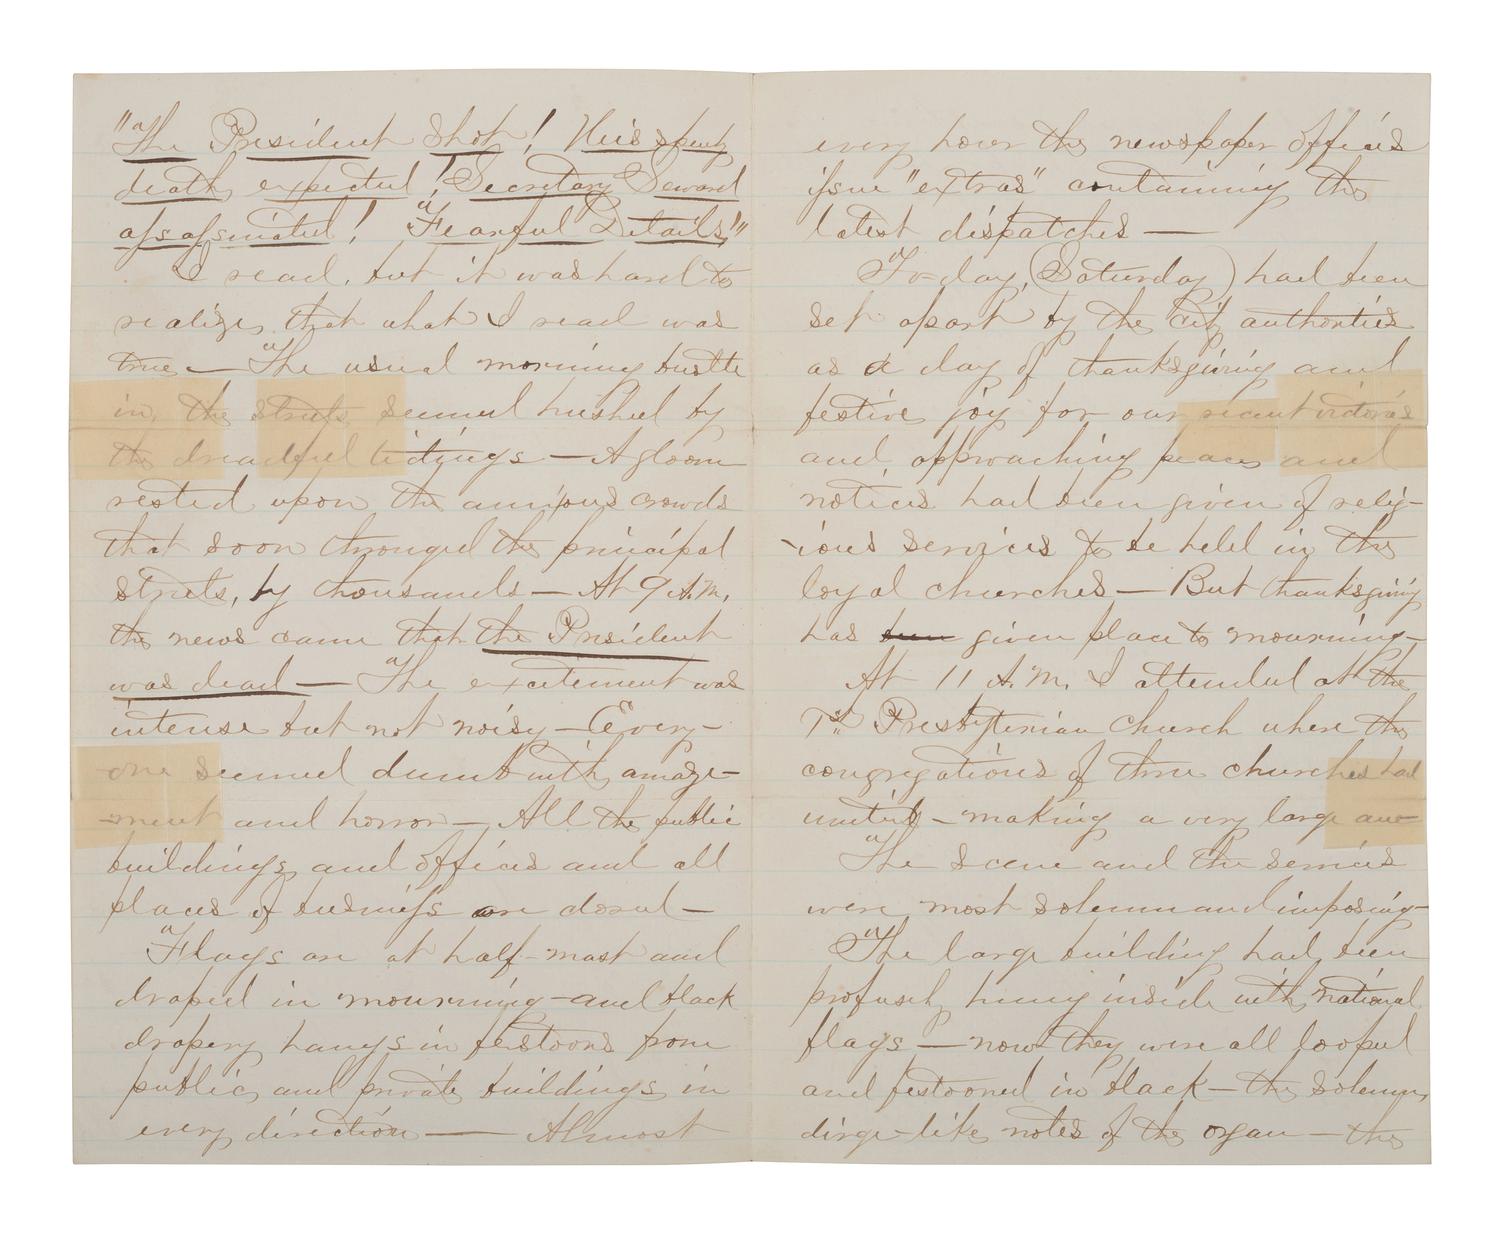 "The President Shot! His speedy
death expected! Secretary Seward
assassinated! Fearful Details!"
I read, but it was hard to
realize that what I read was
true — The usual morning bustle
in the streets seemed hushed by
the dreadful tidings — A gloom
rested upon the anxious crowds
that soon thronged the principal
streets, by thousands — At 9 A.M.
the news came that the President
was dead — The excitement was
intense but not noisy — Every-
one seemed dumb with amaze-
ment and horror — All the public
buildings and offices and all
places of business are closed —
Flags are at half-mast and
draped in mourning — and black
drapery hangs in festoons from
public and private buildings in
every direction — Almost
every hour the newspaper offices
issue "extras" containing the
latest dispatches —
To-day, (Saturday) had been
set apart by the City authorities
as a day of thanksgiving and
festive joy for our recent victories
and approaching peace and
notices had been given of relig-
-ious services to be held in the
loyal churches — But thanksgiving
has been given place to mourning —
At 11 A.M. I attended at the
1st Presbyterian Church where the
congregations of three churches had
united — making a very large au-
The scene and the services
were most solemn and imposing —
The large building had been
profusely hung inside with national
flags — now they were all looped
and festooned in black — the solemn,
dirge-like notes of the organ — the